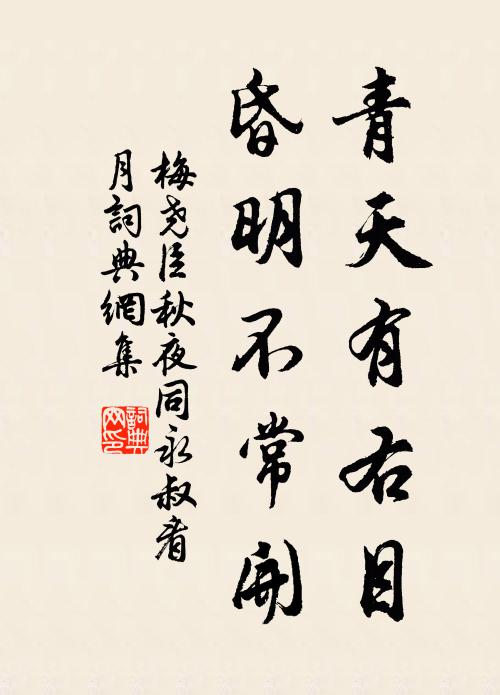 青天有右目
昏明不常開
梅堯臣秋夜同永叔看
月詞典網集
詞典
网印